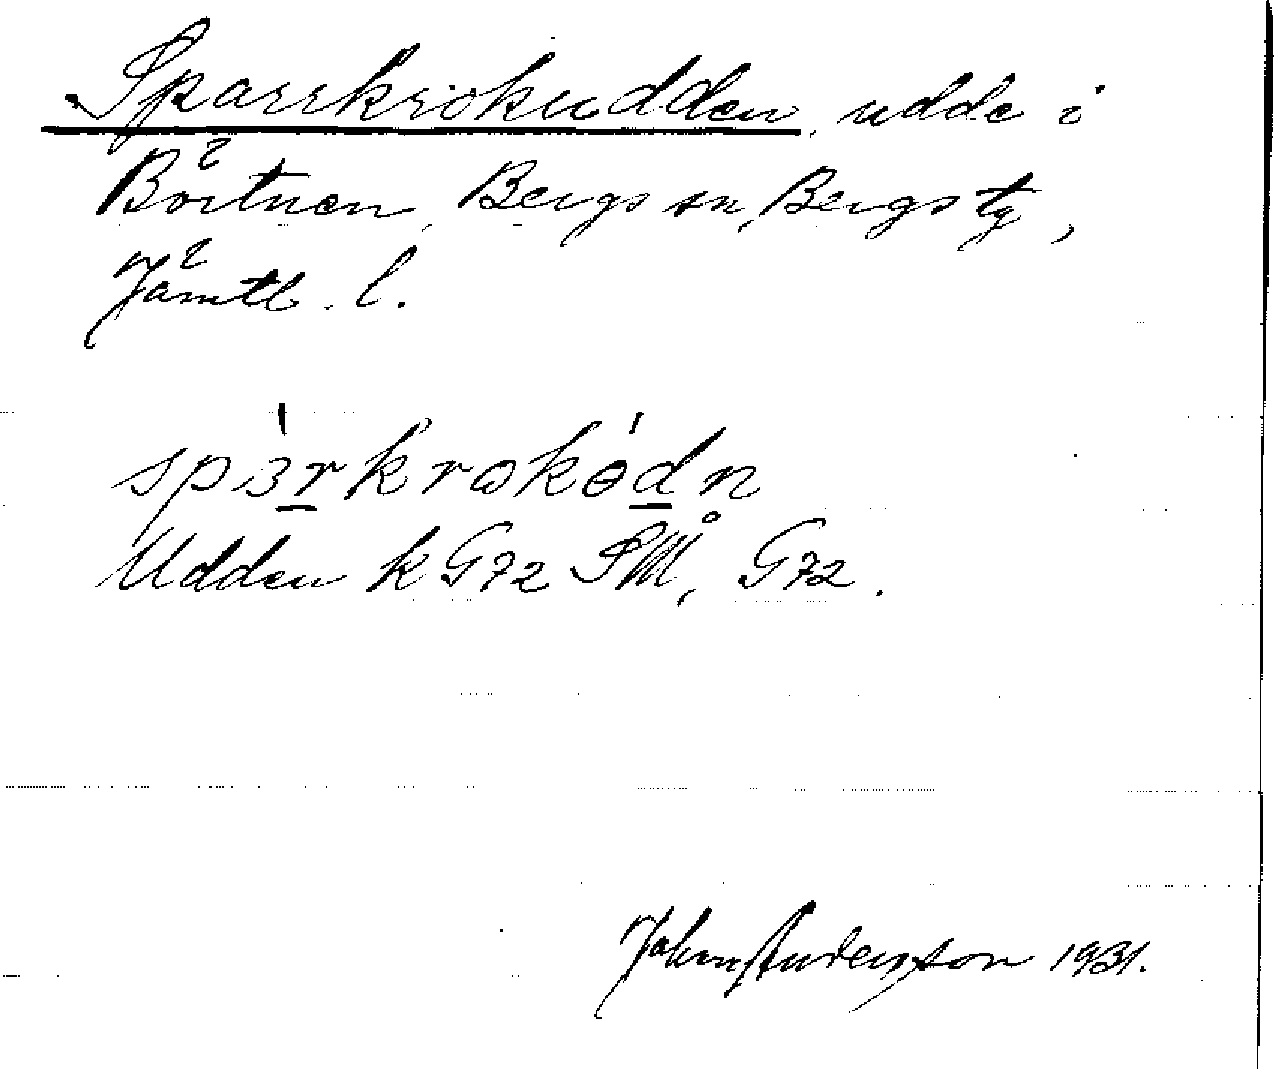 Sparrkrokudden, udde i
Börtnen, Bergs sn, Bergs tg,
Jämtl. l.
spɜ̀rkrωkɵ́dn
Udden k G72 SMÅ, G72.
John Andersson 1931.